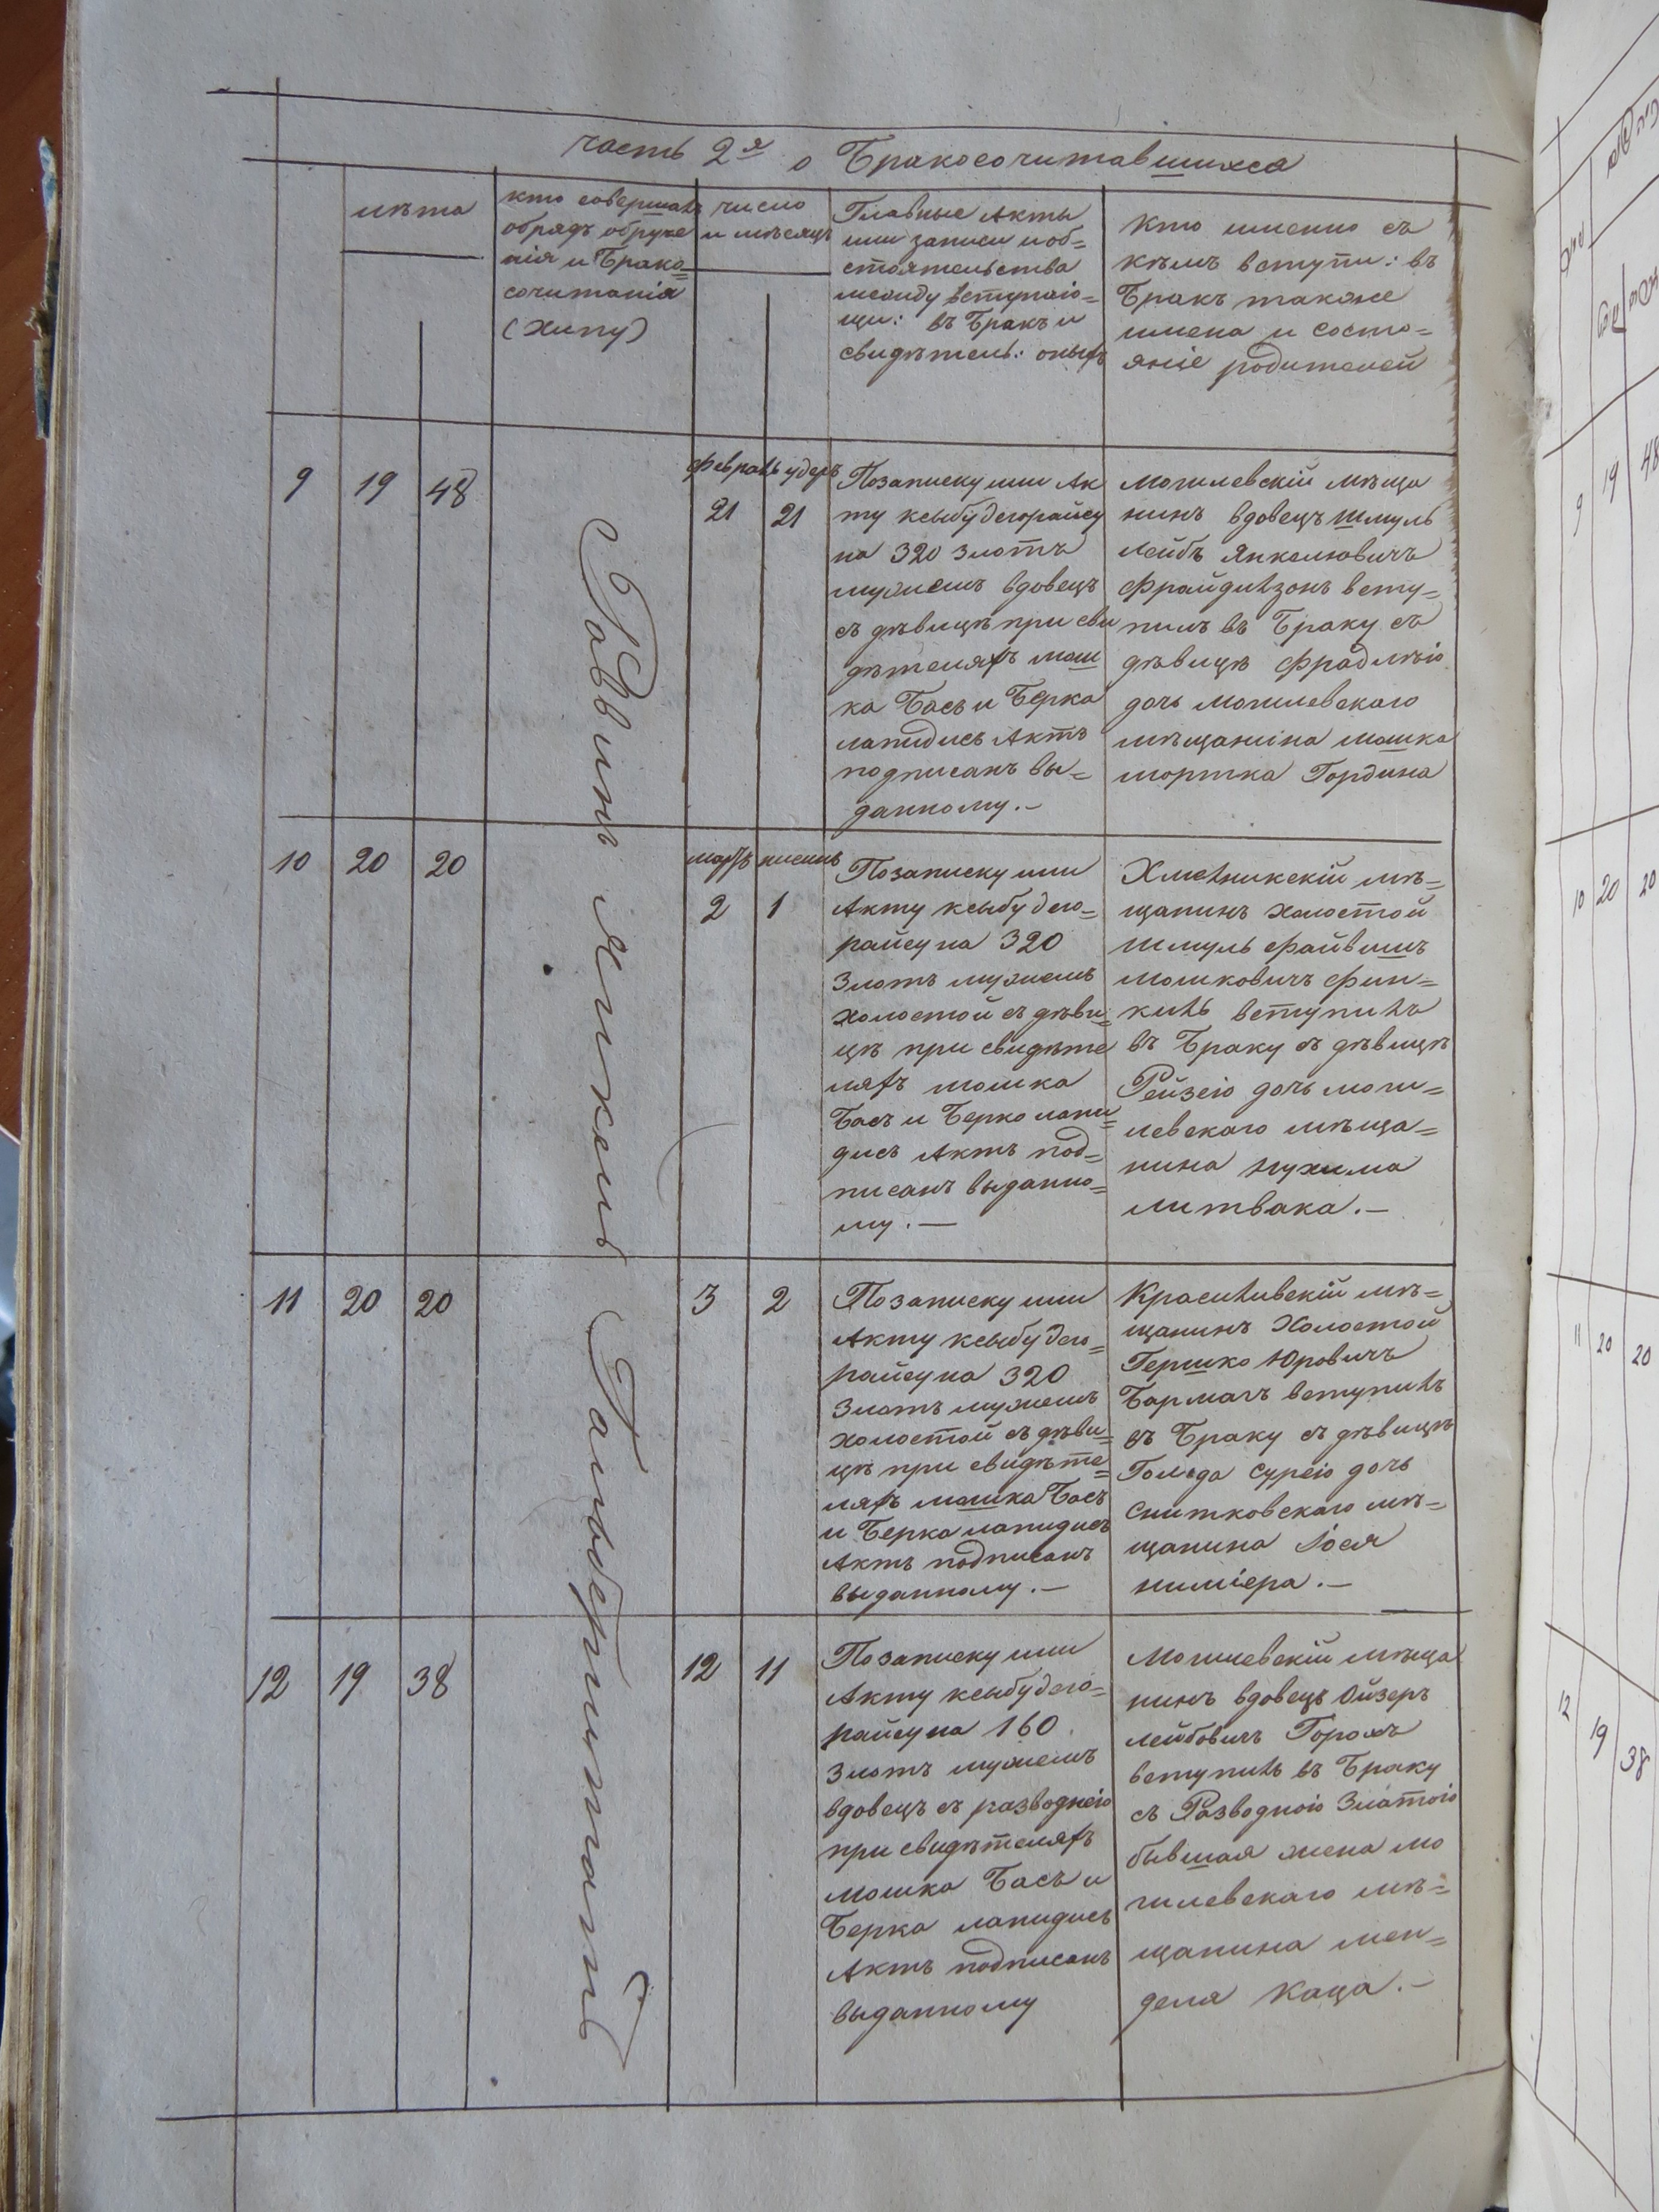 часть 2я о Бракосочитавшихся
лѣта
кто совершалъ
обрядъ обруче
нія и Брако=
сочитанія
(хипу)
число
и мѣсяцъ
Главные Акты
или записи и об=
стоятельства
между вступаю=
щи: въ Бракъ и
свидѣтель: оныхъ
Кто именно съ
кѣмъ вступи: въ
Бракъ также
имена и состо=
яніе родителей
9
19
48
Раввинъ Янкель
февраль удеръ
21
21
Позаписку или Ак
ту ксыбу дегорайсу
на 320 злотъ
мужемъ вдовецъ
съ дѣвицѣ при сви
дѣтеляхъ мош
ка Басъ и Берка
лапидисъ Актъ
подписанъ вы=
данному.–
Могилевскій мѣща
нинъ вдовецъ Шмуль
Лейбъ Янкелювичъ
Фрайдилзонъ всту=
пилъ въ Браку съ
дѣвицѣ Фрадлѣю
дочь Могилевскаго
мѣщанина Мошка
Мортка Гордина
10
20
20
мартъ нисинъ
2
1
Позаписку или
Акту ксыбу дего=
райсу на 320
Злотъ мужемъ
холостой съ дѣви=
цѣ при свидѣте
ляхъ мошка
Басъ и Берко лапи=
дисъ Актъ под=
писанъ выданно=
му.–
Хмельникскій мѣ=
щанинъ холостой
Шмуль Файвишъ
Мошковичъ Фин=
киль вступилъ
въ Браку съ дѣвицѣ
Рейзею дочь моги=
левскаго мѣща=
нина Нухима
литвака.–
11
20
20
3
2
Позаписку или
Акту ксыбу дего=
райсу на 320
Злотъ мужемъ
холостой съ дѣви=
цѣ при свидѣте=
ляхъ мошка Басъ
и Берка лапидисъ
Актъ подписанъ
выданному.–
Красиливскій мѣ=
щанинъ Холостой
Гершко Юровичъ
Бармачъ вступилъ
въ Браку съ дѣвицѣ
Голда Сурею дочь
Снитковскаго мѣ=
щанина Іося
12
19
38
12
11
Позаписку или
Акту ксыбу дего=
райсу на 160
Злотъ мужемъ
вдовецъ съ разводнею
при свидѣтеляхъ
Мошка Басъ и
Берка лапидисъ
Актъ подписанъ
выданному
Могилевскій мѣща
нинъ вдовецъ Ойзеръ
лейбовичъ Горохъ
вступилъ въ Браку
съ Разводною Златою
бывшая жена мо
гилевскаго мѣ=
щанина Мен=
деля Каца.–
9
19
48
10
20
20
11
20
20
12
19
38